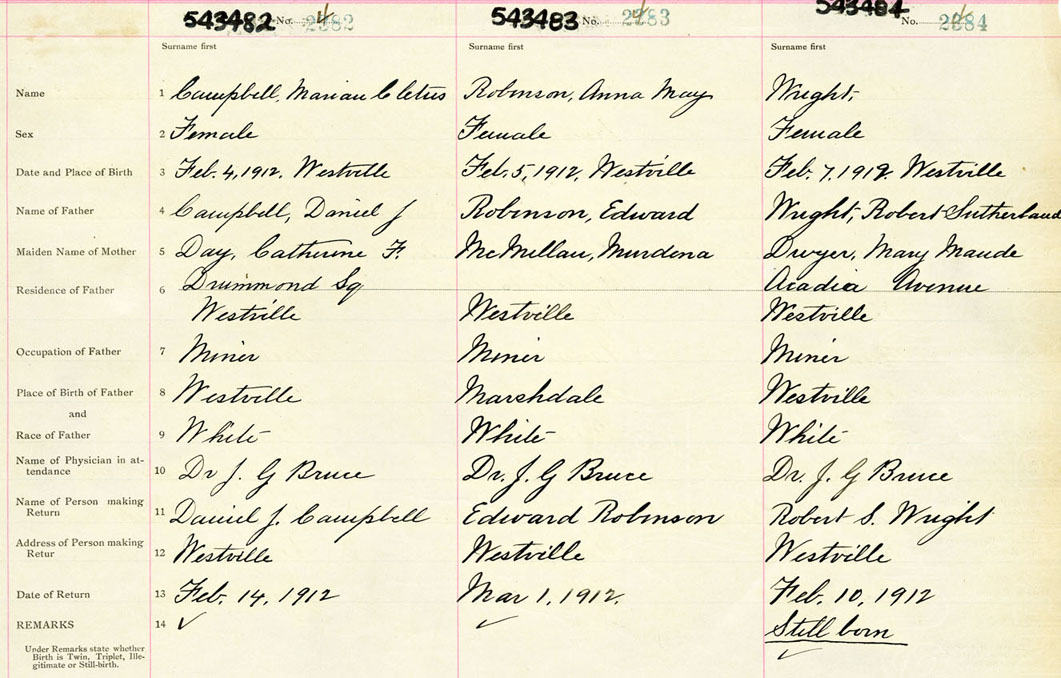 543482 No. 2382 543483 No. 2383 543484 No. 2384
Surname first Surname first Surname first
Name 1 Campbell, Marian Cletus Robinson, Anna May Wright,
Sex 2 Female Female Female
Date and Place of Birth 3 Feb. 4, 1912. Westville Feb. 5, 1912, Westville Feb. 7. 1912. Westville
Name of Father 4 Campbell, Daniel J Robinson, Edward Wright, Robert Sutherland
Maiden Name of Mother 5 Day, Catherine F. McMillan, Murdena Dwyer, Mary Maude
Residence of Father 6 Drummond Sq Acadia Avenue
Westville Westville Westville
Occupation of Father 7 Miner Miner Miner
Place of Birth of Father 8 Westville Marshdale Westville
and
Race of Father 9 White White White
Name of Physician in at-
tendance 10 Dr J. G Bruce Dr. J. G Bruce Dr. J. G Bruce
Name of Person making
Return 11 Daniel J. Campbell Edward Robinson Robert S. Wright
Address of Person making
Retur 12 Westville Westville Westville
Date of Return 13 Feb. 14, 1912 Mar 1, 1912. Feb. 10, 1912
REMARKS 14 ✓ ✓ Still born
✓
Under Remarks state whether
Birth is Twin, Triplet, Ille-
gitimate or Still-birth.